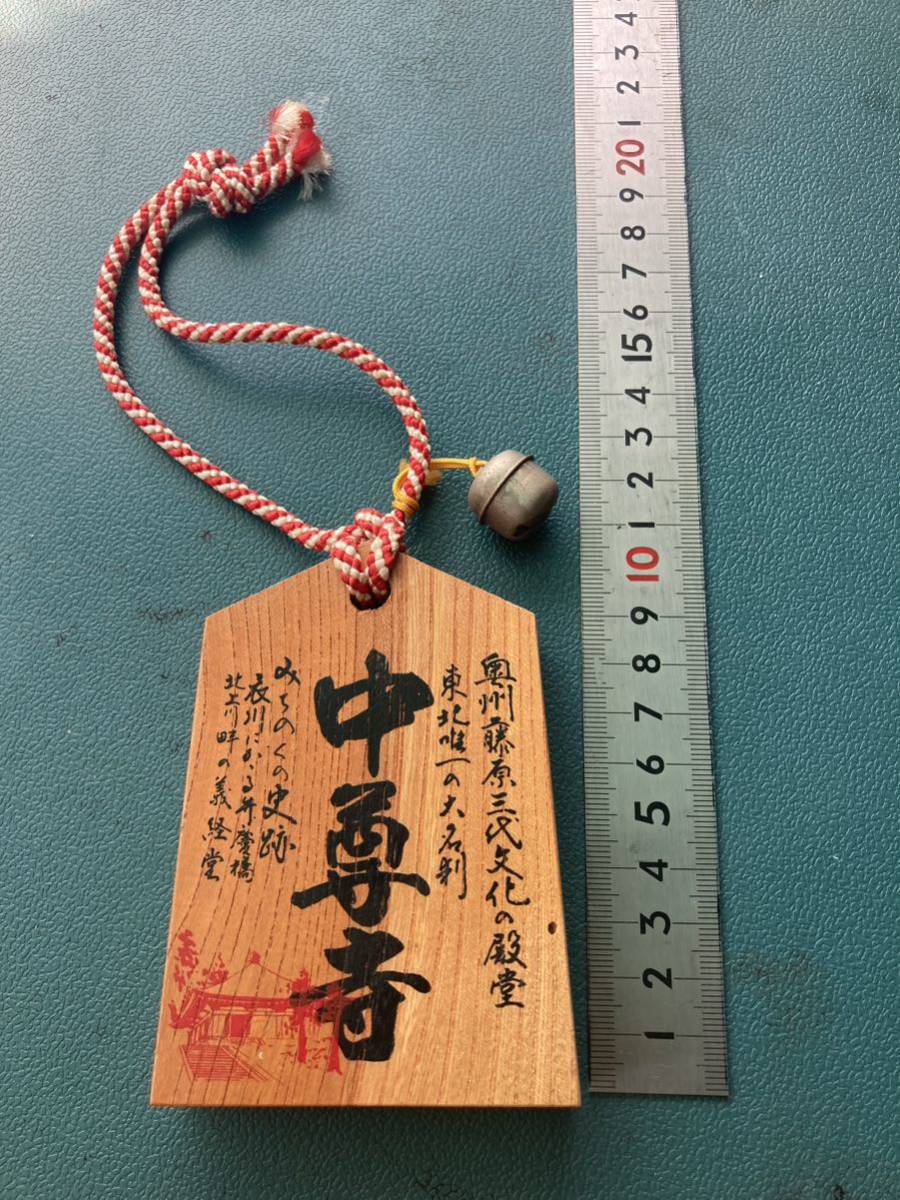 奥州藤原三代文化の殿堂
東北唯一の大名刹
中尊寺
みちのくの史跡
衣川にかゝる弁慶橋
北上川畔の義経堂
4
3
2
1
20
9
8
7
6
15
4
3
2
1
10
9
8
7
6
5
4
3
2
1